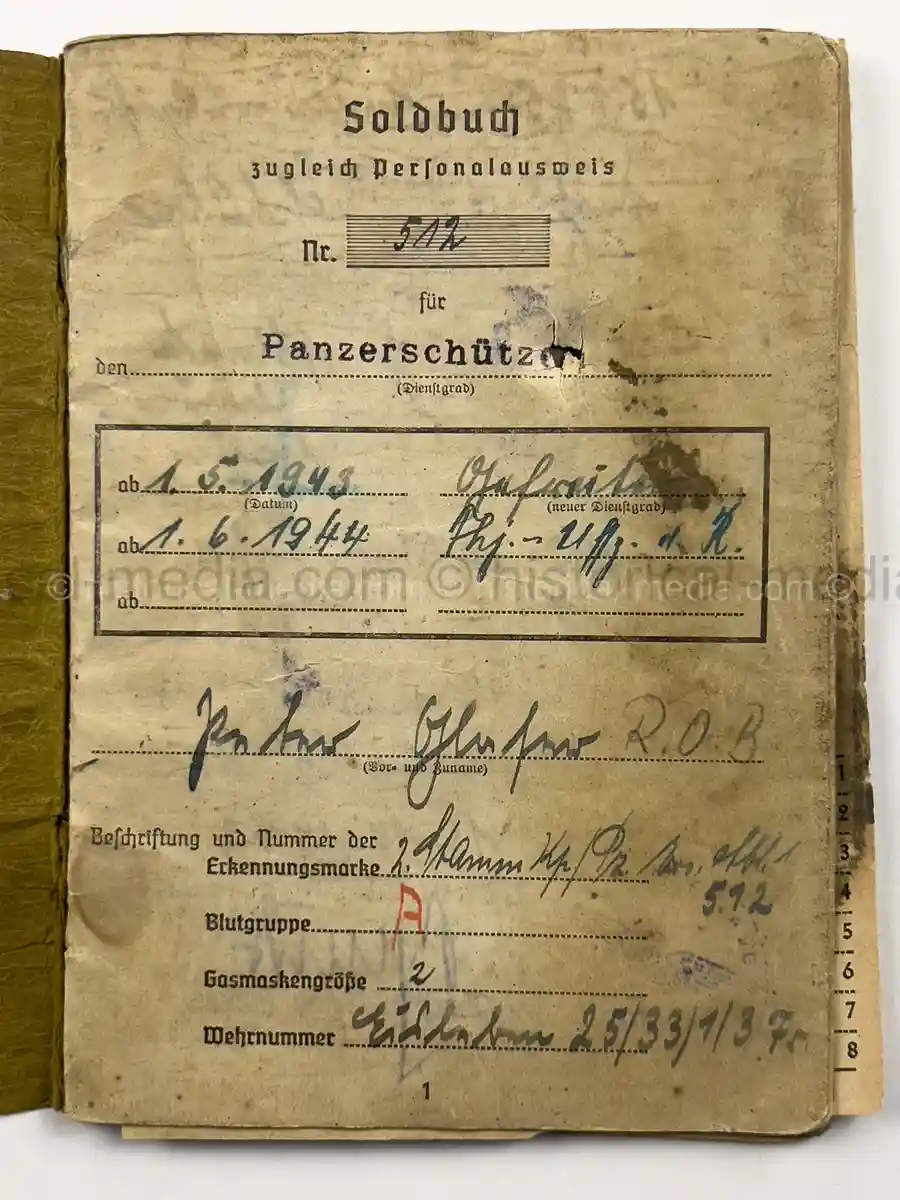 Soldbuch
zugleich Personalausweis
Nr. 512
für
den Panzerschütze
(Dienstgrad)
ab 1. 5. 1943 Gefreiter
(Datum) (neuer Dienstgrad)
ab 1. 6. 1944 Fhj.-Uffz. d. R.
© historical-media.com
ab
Peter Glaser R.O.B
(Vor- und Zuname)
Beschriftung und Nummer der
Erkennungsmarke 2. Stamm Kp/Pz. Abt. 1
512
Blutgruppe A
Gasmaskengröße 2
Wehrnummer Eisleben 25/33/1/3
1
1
2
3
4
5
6
7
8